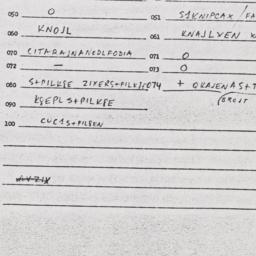 050 O 051 S1KNIPCAX / FA
060 KNOJL 061 KNAJLXEN
070 CITARAJNANEDLFODIA 071 O
072 – 073 O
080 S+PILKSE ZIXERS+PILKSE 074 + ORAJENAS+T
090 KSEPLS+PILKSE
100 CUC1S+PILSEN